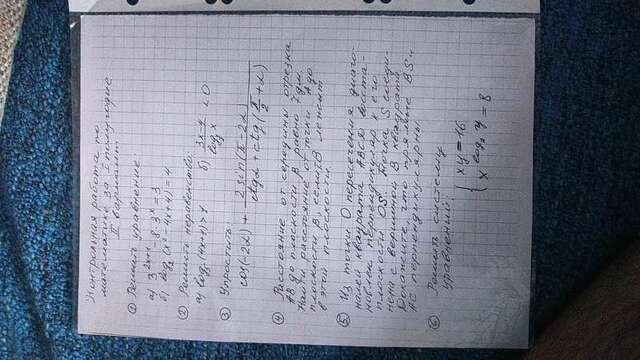 Контрольная работа по
математике за I полугодие
II вариант
① Решить уравнение:
а) 3^(2x+1) - 8·3^x = 3
б) log₂(x² - 4x + 4) = 4
② Решить неравенство:
а) log₃(4x+1) > 1 б) (3x-4)/(log₃ x) < 0
③ Упростить:
cos(-2α) + (2 sin(π-2α))/(ctgα + ctg(π/2 + α))
④ Расстояние от середины отрезка
AB до плоскости β равно 7 дм.
Найти расстояние от точки A до
плоскости β, если B лежит
в этой плоскости.
⑤ Из точки O пересечения диаго-
налей квадрата ABCD восста-
новлен перпендикуляр к его
плоскости OS. Точка S соеди-
нена с вершиной B квадрата.
Докажите, что прямые BS и
AC перпендикулярны.
⑥ Решить систему
уравнений:
xy = 16
x^(log₂ y) = 8